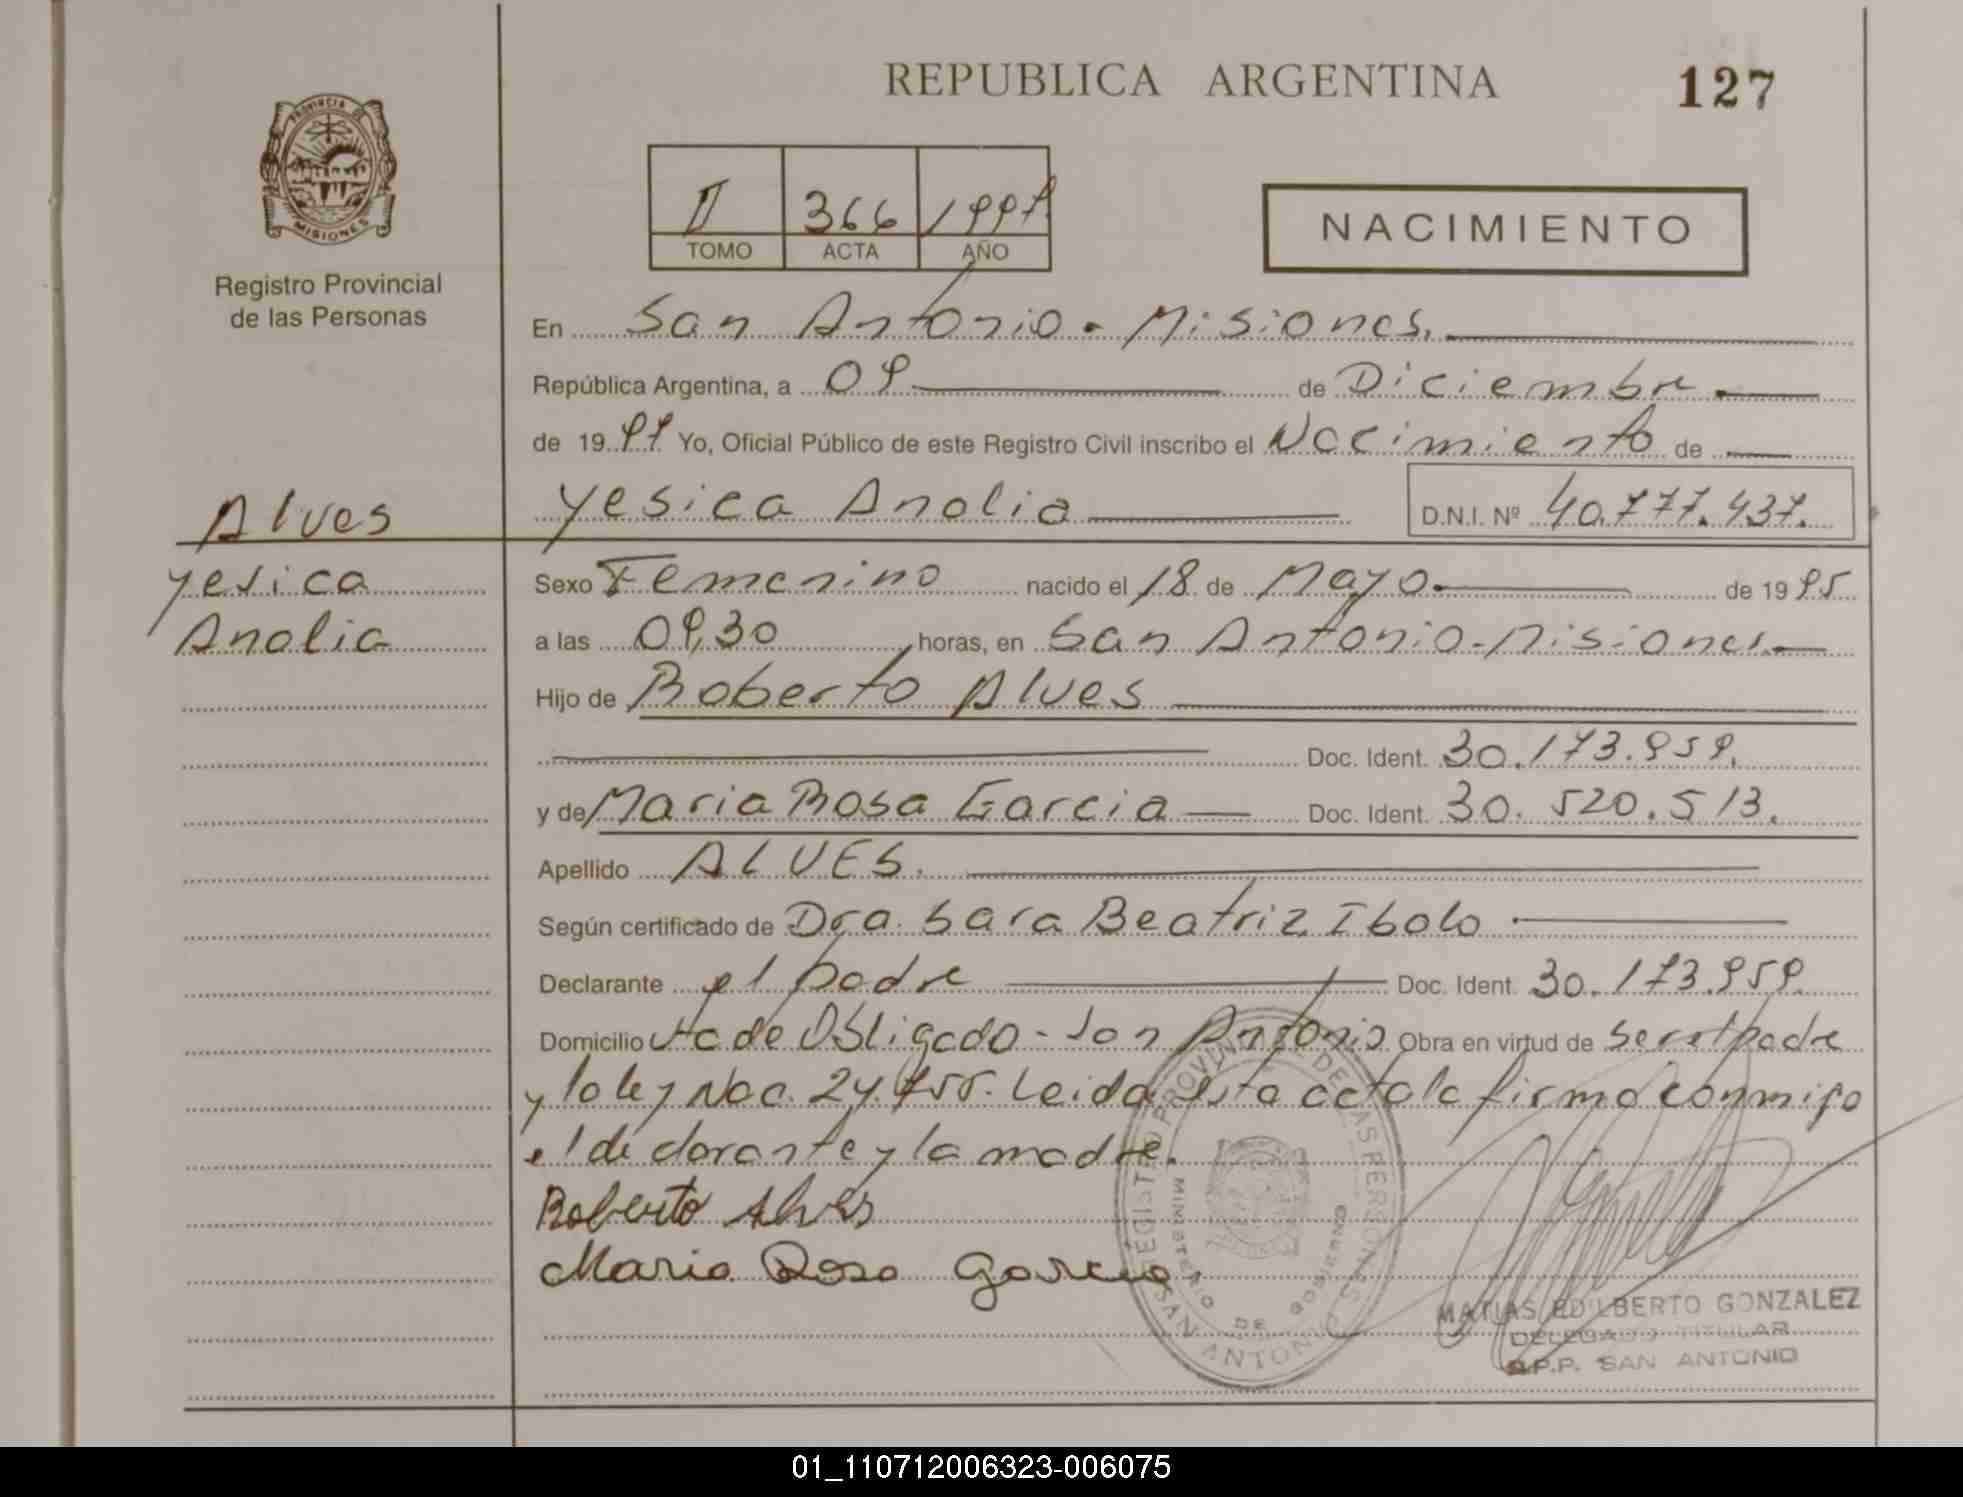 REPUBLICA ARGENTINA
127
PROVINCIA DE
MISIONES
Registro Provincial
de las Personas
II 366 1997
TOMO ACTA AÑO
NACIMIENTO
En San Antonio - Misiones.
República Argentina, a 09 de Diciembre
de 1997 Yo, Oficial Público de este Registro Civil inscribo el Nacimiento de
Alves
Yesica Analia D.N.I. Nº 40.777.437.
Yesica
Analia
Sexo Femenino nacido el 18 de Mayo de 1995
a las 09,30 horas, en San Antonio - Misiones.
Hijo de Roberto Alves
Doc. Ident. 30.173.959.
y de Maria Rosa Garcia Doc. Ident. 30.520.513.
Apellido ALVES.
Según certificado de Dra. Sara Beatriz Ibalo
Declarante el padre Doc. Ident. 30.173.959.
Domicilio Vta de Obligado - San Antonio Obra en virtud de ser el padre
y la ley Nac. 24.755. Leida esta acta la firma conmigo
el declarante y la madre.
Roberto Alves
Maria Rosa Garcia
REGISTRO PROVINCIAL DE LAS PERSONAS
MINISTERIO DE GOBIERNO
SAN ANTONIO
MATIAS EDILBERTO GONZALEZ
DELEGADO TITULAR
R.P.P. SAN ANTONIO
01_110712006323-006075